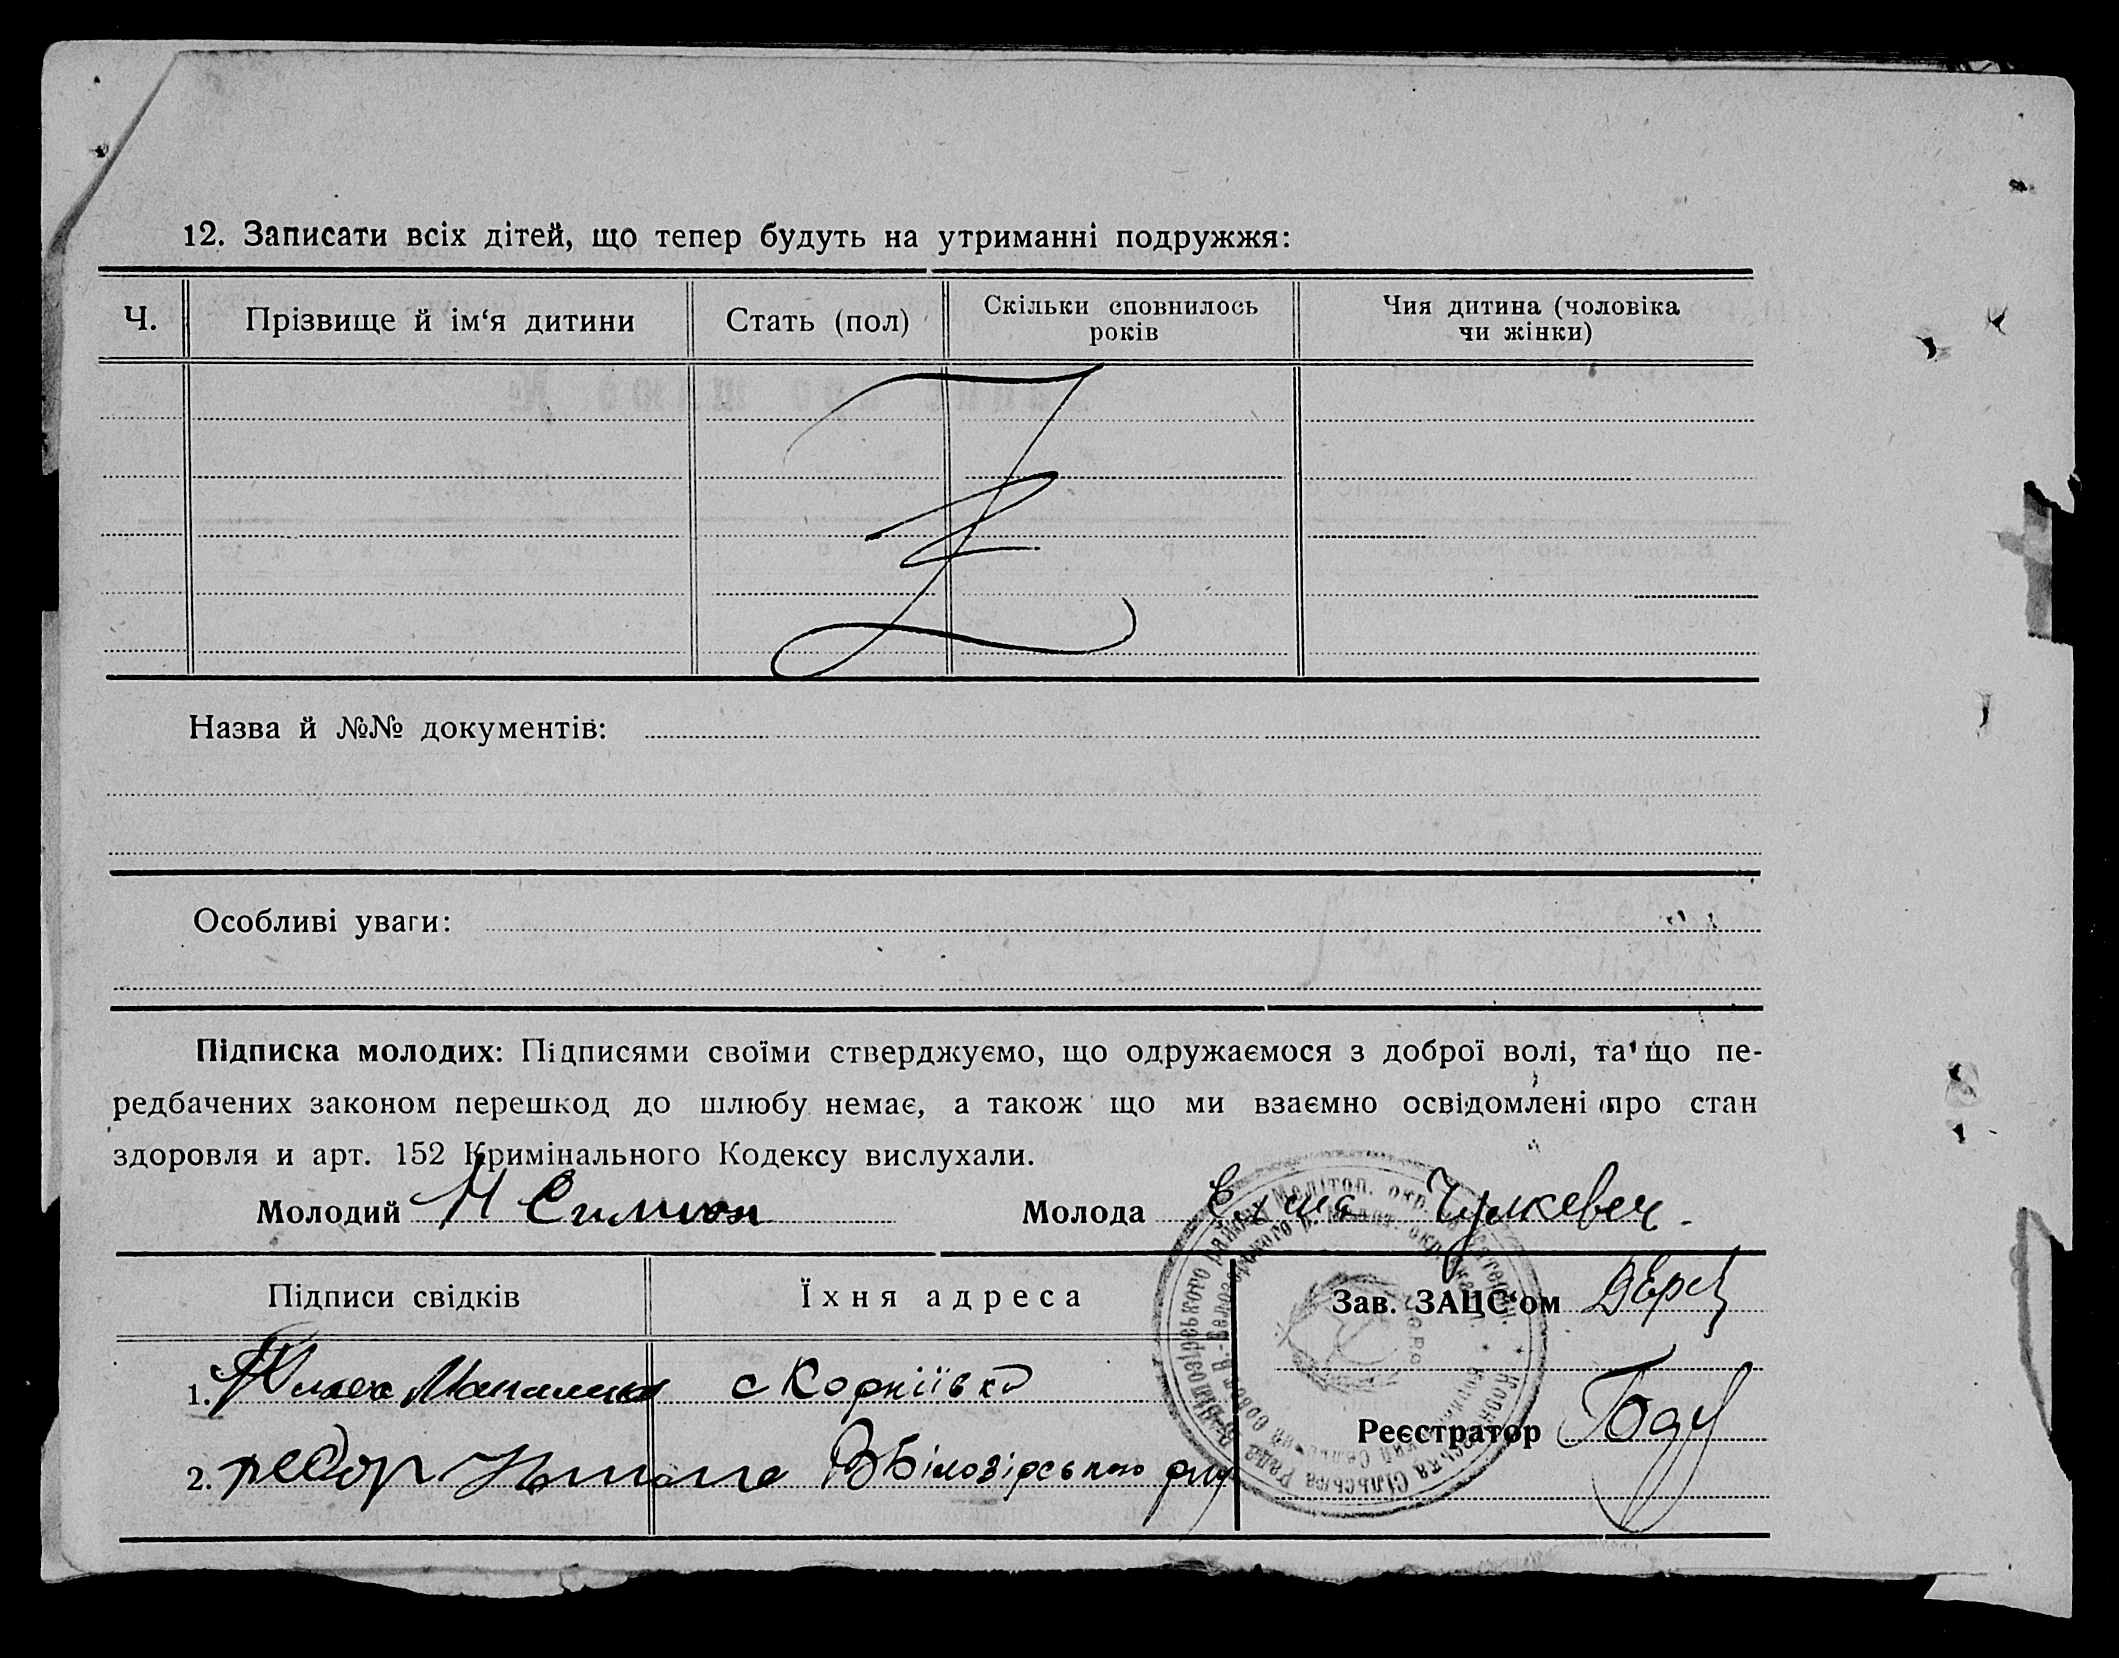 12. Записати всіх дітей, що тепер будуть на утриманні подружжя:
Ч.
Прізвище й ім‘я дитини
Стать (пол)
Скільки сповнилось
років
Чия дитина (чоловіка
чи жінки)
Назва й №№ документів:
Особливі уваги:
Підписка молодих: Підписями своїми стверджуємо, що одружаємося з доброї волі, та що пе-
редбачених законом перешкод до шлюбу немає, а також що ми взаємно освідомлені про стан
здоровля и арт. 152 Кримінального Кодексу вислухали.
Молодий Н Симион
Молода
Підписи свідків
Їхня адреса
Зав. ЗАЦС‘ом
1.
с Корніївка
Реєстратор
2. федор
ВБілозірського рну